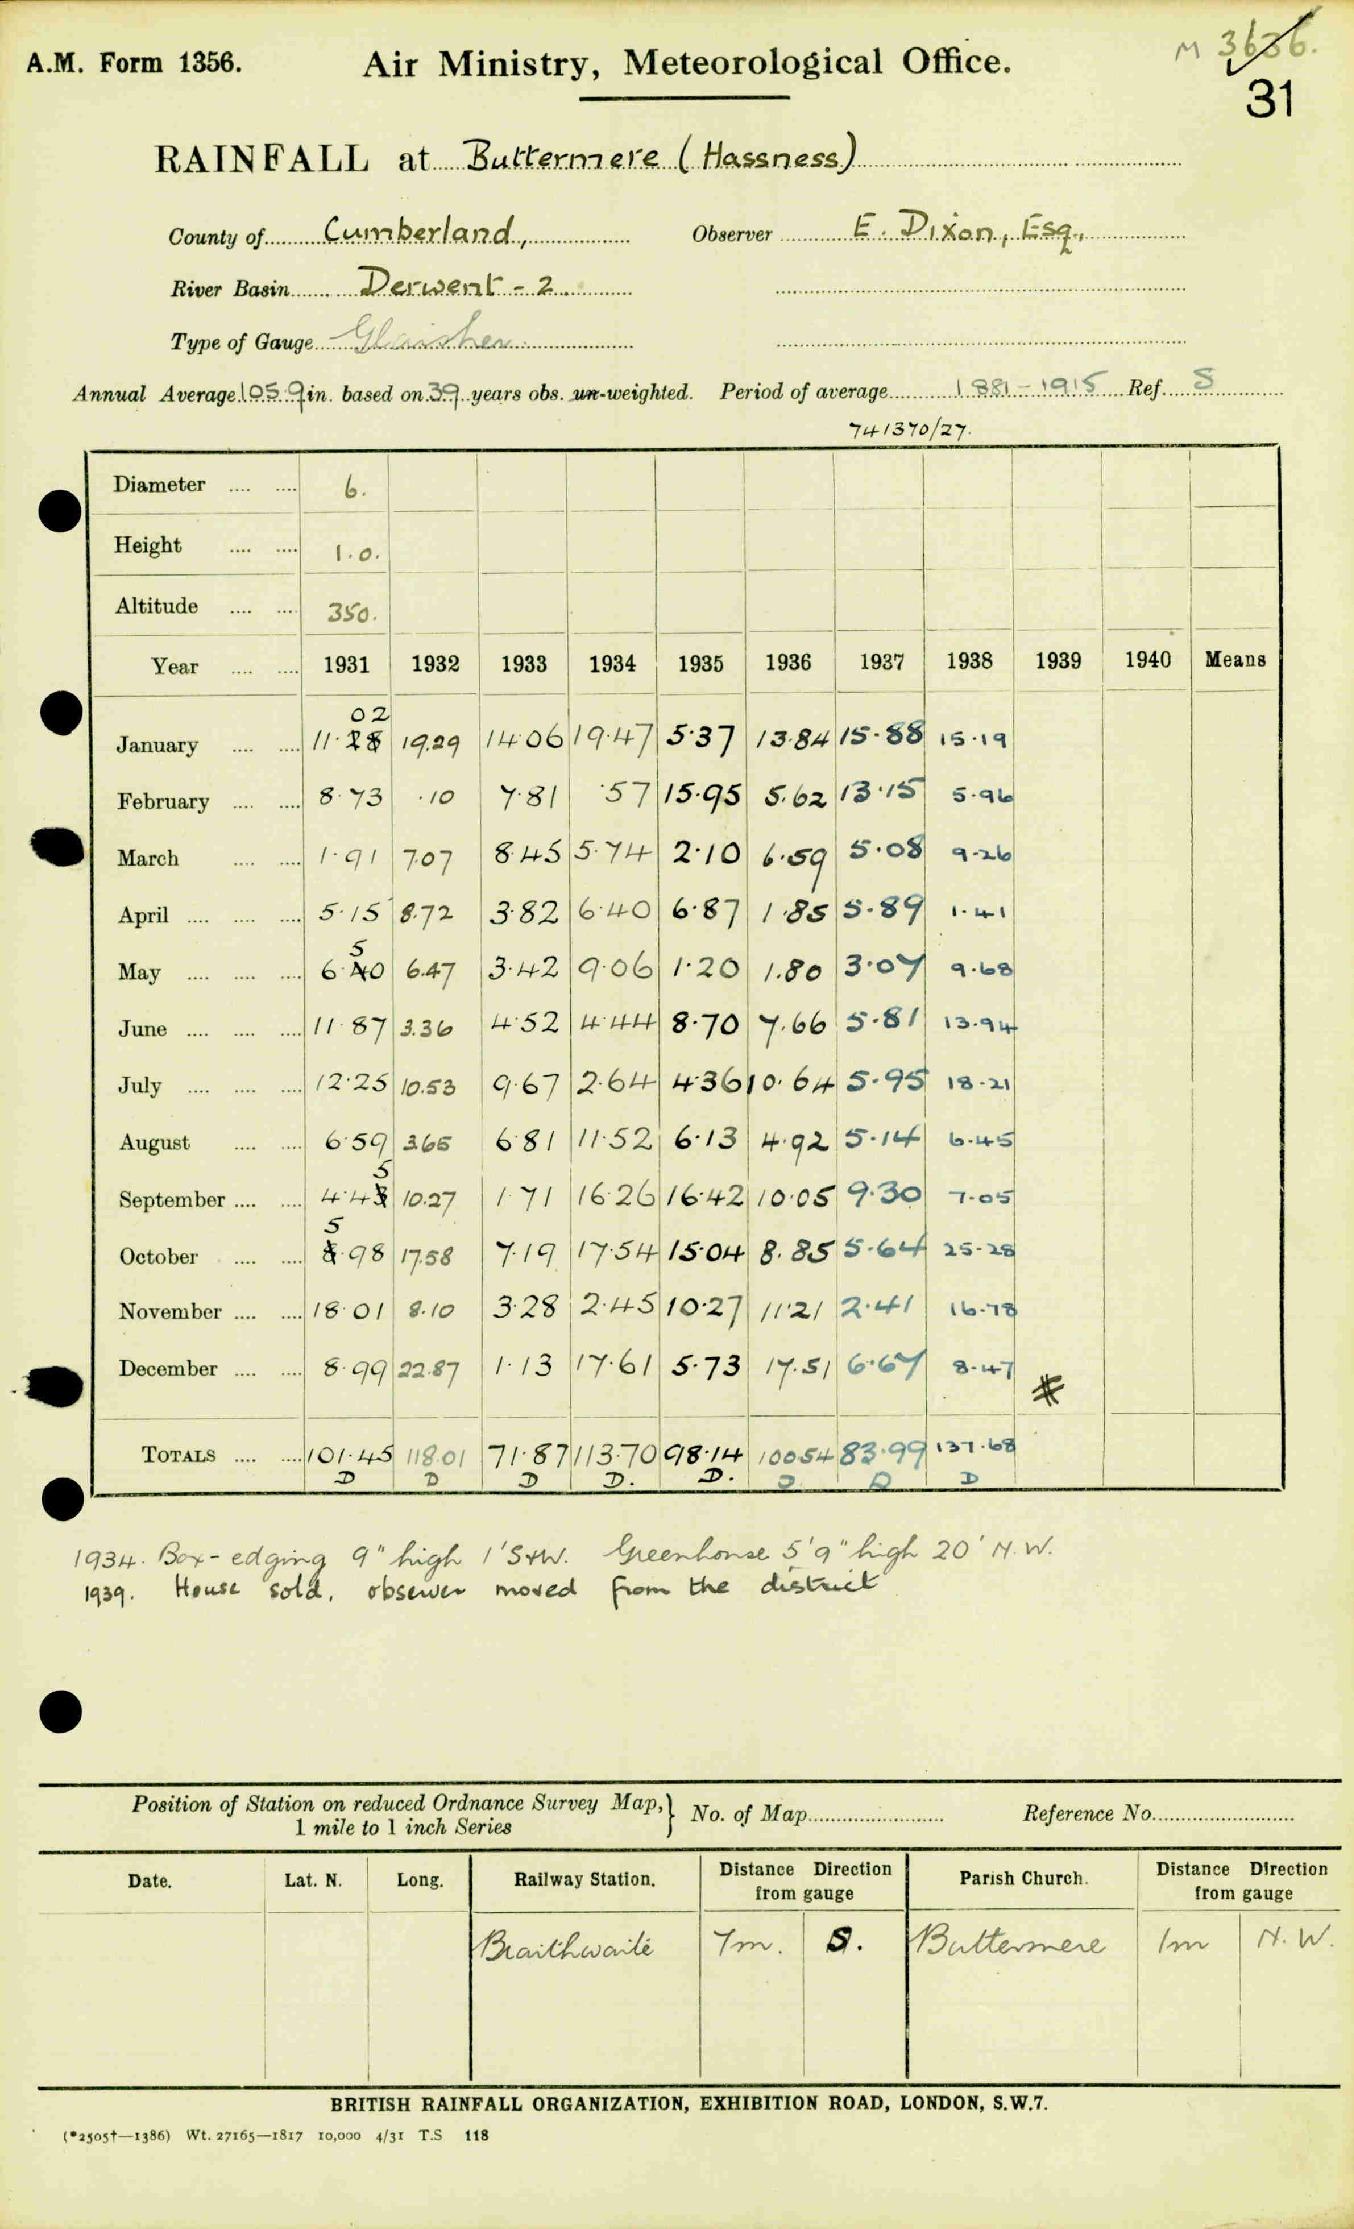 A.M. Form 1356. Air Ministry, Meteorological Office. M 3636.
31
RAINFALL at Buttermere (Hassness)
County of Cumberland, Observer E. Dixon, Esq.,
River Basin Derwent - 2
Type of Gauge Glaisher
Annual Average 105.9 in. based on 39 years obs. un-weighted. Period of average 1881-1915 Ref. S
741370/27.
Diameter .... .... 6.
Height .... .... 1.0.
Altitude .... .... 350.
Year .... .... 1931 1932 1933 1934 1935 1936 1937 1938 1939 1940 Means
02
January .... .... 11.28 19.29 14.06 19.47 5.37 13.84 15.88 15.19
February .... .... 8.73 .10 7.81 .57 15.95 5.62 13.15 5.96
March .... .... 1.91 7.07 8.45 5.74 2.10 6.59 5.08 9.26
April .... .... .... 5.15 8.72 3.82 6.40 6.87 1.85 5.89 1.41
5
May .... .... .... 6.40 6.47 3.42 9.06 1.20 1.80 3.07 9.68
June .... .... .... 11.87 3.36 4.52 4.44 8.70 7.66 5.81 13.94
July .... .... .... 12.25 10.53 9.67 2.64 4.36 10.64 5.95 18.21
August .... .... 6.59 3.65 6.81 11.52 6.13 4.92 5.14 6.45
5
September .... .... 4.43 10.27 1.71 16.26 16.42 10.05 9.30 7.05
5
October .... .... .98 17.58 7.19 17.54 15.04 8.85 5.64 25.28
November .... .... 18.01 8.10 3.28 2.45 10.27 11.21 2.41 16.78
December .... .... 8.99 22.87 1.13 17.61 5.73 17.51 6.67 8.47
#
TOTALS .... .... 101.45 118.01 71.87 113.70 98.14 100.54 83.99 137.68
D D D D. D. D D D
1934. Box-edging 9" high 1' S+W. Greenhouse 5'9" high 20' N.W.
1939. House sold, observer moved from the district
Position of Station on reduced Ordnance Survey Map, } No. of Map Reference No.
1 mile to 1 inch Series
Date. Lat. N. Long. Railway Station. Distance Direction from gauge Parish Church. Distance Direction from gauge
Braithwaite 7m. S. Buttermere 1m N.W.
BRITISH RAINFALL ORGANIZATION, EXHIBITION ROAD, LONDON, S.W.7.
(*2505†—1386) Wt. 27165—1817 10,000 4/31 T.S 118